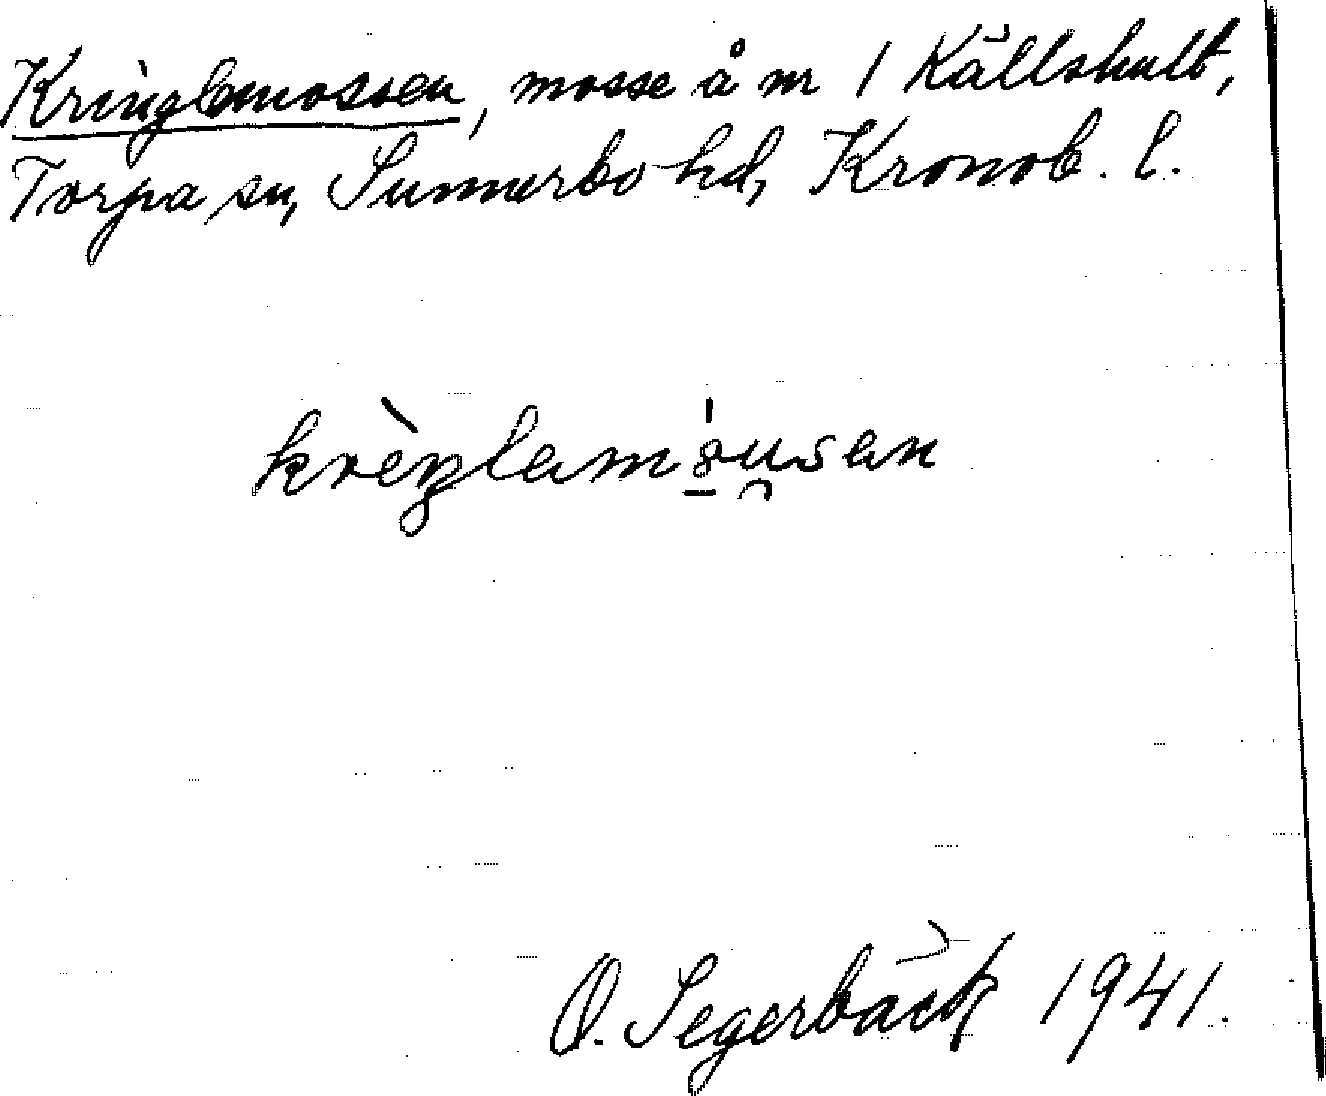 Kringlemossen, mosse å nr 1 Källshult,
Torpa sn, Sunnerbo hd, Kronob. l.
O. Segerbäck 1941.